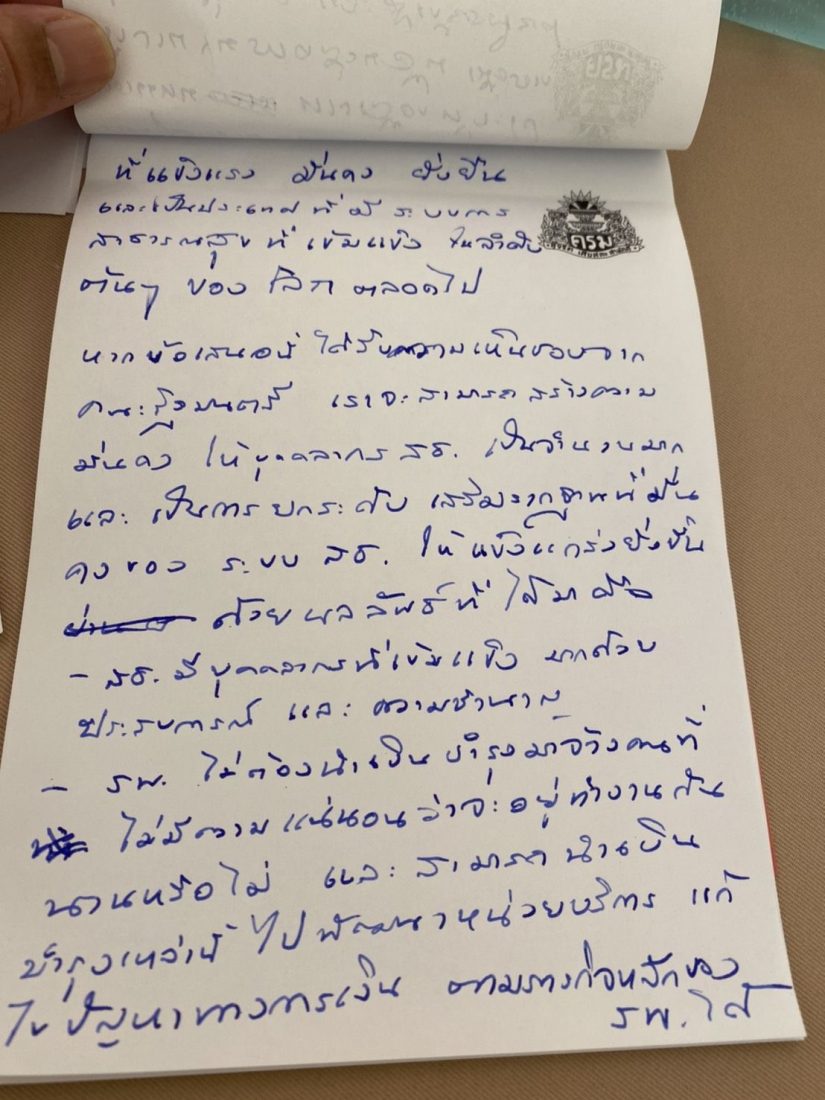 ที่แข็งแรง มั่นคง ยั่งยืน
และเป็นประเทศ ที่ มี ระบบการ
สาธารณสุข ที่ เข้มแข็ง ในลำดับ
ต้นๆ ของ โลก ตลอดไป
ครม
หากข้อเสนอนี้ ได้รับความเห็นชอบจาก
คณะรัฐมนตรี เราจะสามารถสร้างความ
มั่นคง ให้บุคคลากร สธ. เป็นจำนวนมาก
และ เป็นการยกระดับ เสริมรากฐานที่มั่น
คงของ ระบบ สธ. ให้แข็งแกร่งยั่งยืน
ด้วย ผลลัพธ์ที่ ได้มา คือ
- สธ. มีบุคคลากรที่เข้มแข็ง มากด้วย
ประสบการณ์ และ ความชำนาญ
- รพ. ไม่ต้องนำเงินบำรุงมาจ้างคนที่
ไม่มีความแน่นอนว่าจะอยู่ทำงานกัน
นานหรือไม่ และ สามารถนำเงิน
บำรุงเหล่านี้ ไปพัฒนาหน่วยบริการ แก้
ไขปัญหาทางการเงิน ตามภารกิจหลักของ
รพ. ได้